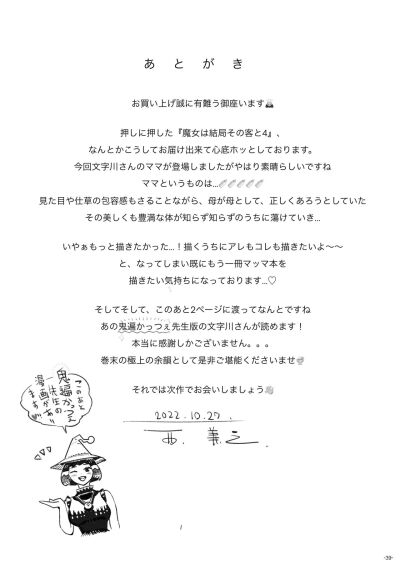 あとがき
お買い上げ誠に有難う御座います
押しに押した『魔女は結局その客と4』、
なんとかこうしてお届け出来て心底ホッとしております。
今回文字川さんのママが登場しましたがやはり素晴らしいですね
ママというものは…
見た目や仕草の包容感もさることながら、母が母として、正しくあろうとしていた
その美しくも豊満な体が知らず知らずのうちに蕩けていき…
いやぁもっと描きたかった…！描くうちにアレもコレも描きたいよ〜〜
と、なってしまい既にもう一冊マッマ本を
描きたい気持ちになっております…♡
そしてそして、このあと2ページに渡ってなんとですね
あの鬼遍かっつぇ先生版の文字川さんが読めます！
本当に感謝しかございません。。。
巻末の極上の余韻として是非ご堪能くださいませ
それでは次作でお会いしましょう
2022.10.27.
このあと
鬼遍かっつぇ
先生の
漫画があり
ますッ!!
-39-